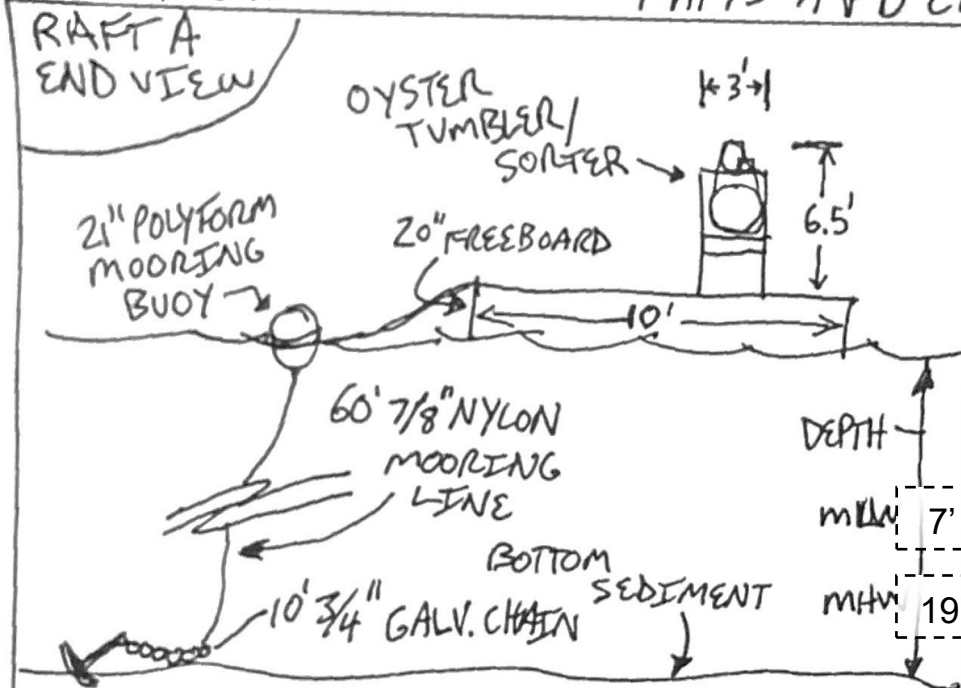 RAFT A
END VIEW
OYSTER
TUMBLER/
SORTER
3'
6.5'
21" POLYFORM
MOORING
BUOY
20" FREEBOARD
10'
60' 7/8" NYLON
MOORING
LINE
DEPTH
MLW 7'
MHW 19
BOTTOM
SEDIMENT
10' 3/4" GALV. CHAIN